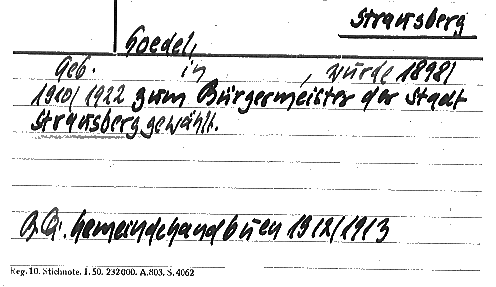 Strausberg
Goedel,
geb. in , wurde 1898/
1910/1922 zum Bürgermeister der Stadt
Strausberg gewählt.
B.Qu. Gemeindehandbuch 1912/1913
Reg. 10. Stichnote. 1. 50. 232000. A.803. S. 4062